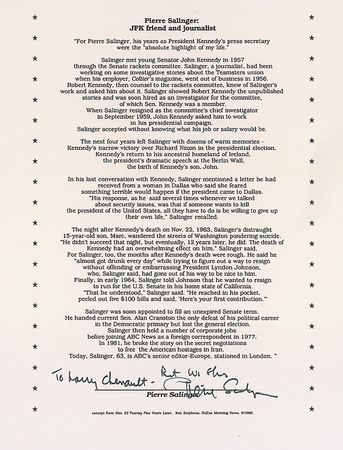 Pierre Salinger:
JFK friend and journalist
"For Pierre Salinger, his years as President Kennedy's press secretary
were the "absolute highlight of my life."
Salinger met young Senator John Kennedy in 1957
through the Senate rackets committee. Salinger, a journalist, had been
working on some investigative stories about the Teamsters union
when his employer, Collier's magazine, went out of business in 1956.
Robert Kennedy, then counsel to the rackets committee, knew of Salinger's
work and asked him about it. Salinger showed Robert Kennedy the unpublished
stories and was soon hired as an investigator for the committee,
of which Sen. Kennedy was a member.
When Salinger resigned as the committee's chief investigator
in September 1959, John Kennedy asked him to work
in his presidential campaign.
Salinger accepted without knowing what his job or salary would be.
The next four years left Salinger with dozens of warm memories -
Kennedy's narrow victory over Richard Nixon in the presidential election,
Kennedy's return to his ancestral homeland of Ireland,
the president's dramatic speech at the Berlin Wall,
the birth of Kennedy's son, John.
In his last conversation with Kennedy, Salinger mentioned a letter he had
received from a woman in Dallas who said she feared
something terrible would happen if the president came to Dallas.
"His response, as he said several times whenever we talked
about security issues, was that if someone wants to kill
the president of the United States, all they have to do is be willing to give up
their own life," Salinger recalled.
The night after Kennedy's death on Nov. 22, 1963, Salinger's distraught
15-year-old son, Marc, wandered the streets of Washington pondering suicide.
"He didn't succeed that night, but eventually, 12 years later, he did. The death of
Kennedy had an overwhelming effect on him," Salinger said.
For Salinger, too, the months after Kennedy's death were rough. He said he
"almost got drunk every day" while trying to figure out a way to resign
without offending or embarrassing President Lyndon Johnson,
who, Salinger said, had gone out of his way to be nice to him.
Finally, in early 1964, Salinger told Johnson that he wanted to resign
to run for the U.S. Senate in his home state of California.
"That he understood," Salinger said. "He reached in his pocket,
peeled out five $100 bills and said, 'Here's your first contribution.'"
Salinger was soon appointed to fill an unexpired Senate term.
He handed current Sen. Alan Cranston the only defeat of his political career
in the Democratic primary but lost the general election.
Salinger then held a number of corporate jobs
before joining ABC News as a foreign correspondent in 1977.
In 1981, he broke the story on the secret negotiations
to free the American hostages in Iran.
Today, Salinger, 63, is ABC's senior editor-Europe, stationed in London. "
To Larry Chenault -
Pierre Salinger
excerpt from Nov. 22 Twenty Five Years Later, Ken Stephens, Dallas Morning News, ©1988.